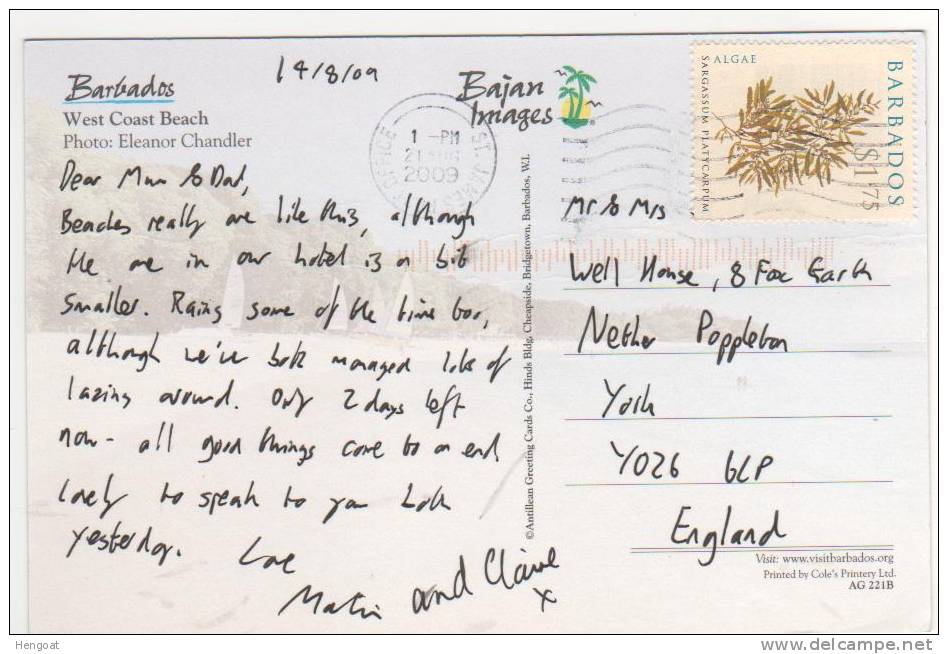 14/8/09
Barbados
West Coast Beach
Photo: Eleanor Chandler
Dear Mum & Dad,
Beaches really are like this, although
the one in our hotel is a bit
smaller. Rains some of the time too,
although we've both managed lots of
lazing around. Only 2 days left
now - all good things come to an end
Lovely to speak to you both
yesterday.
Love
Martin and Claire
x
Bajan
Images
OFFICE
ST. JAMES
1 -PM
21 AUG
2009
©Antillean Greeting Cards Co., Hinds Bldg, Cheapside, Bridgetown, Barbados, W.I.
ALGAE
SARGASSUM PLATYCARPUM
BARBADOS
$1.75
Mr & Mrs
Well House, 8 Fox Garth
Nether Poppleton
York
YO26 6LP
England
Visit: www.visitbarbados.org
Printed by Cole's Printery Ltd.
AG 221B
Hengoat
delcampe.net